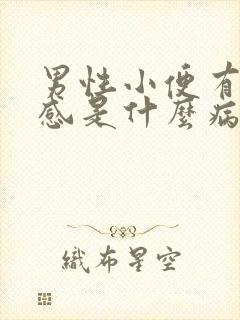 男性小便有
感是什麼病
織布星空